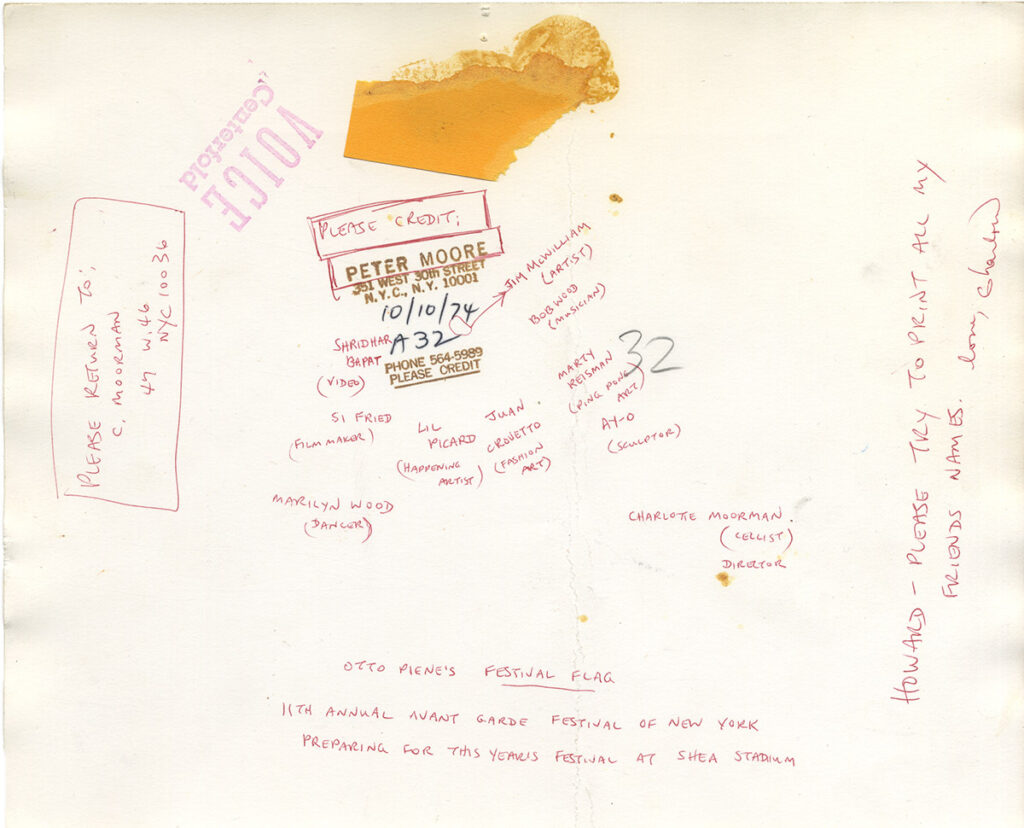 VOICE
Centerfold
PLEASE RETURN TO:
C. MOORMAN
47 W. 46
NYC 10036
PLEASE CREDIT:
PETER MOORE
351 WEST 30th STREET
N.Y.C., N.Y. 10001
10/10/74
A 32
PHONE 564-5989
PLEASE CREDIT
JIM McWILLIAM
(ARTIST)
BOB WOOD
(MUSICIAN)
32
SHRIDHAR
BAPAT
(VIDEO)
MARTY
REISMAN
(PING PONG
ART)
SI FRIED
(FILM MAKER)
LIL
PICARD
(HAPPENING
ARTIST)
JUAN
CROVETTO
(FASHION
ART)
AY-O
(SCULPTOR)
MARILYN WOOD
(DANCER)
CHARLOTTE MOORMAN.
(CELLIST)
DIRECTOR
OTTO PIENE'S FESTIVAL FLAG
11TH ANNUAL AVANT GARDE FESTIVAL OF NEW YORK
PREPARING FOR THIS YEAR'S FESTIVAL AT SHEA STADIUM
HOWARD - PLEASE TRY TO PRINT ALL MY
FRIENDS NAMES. love, Charlotte